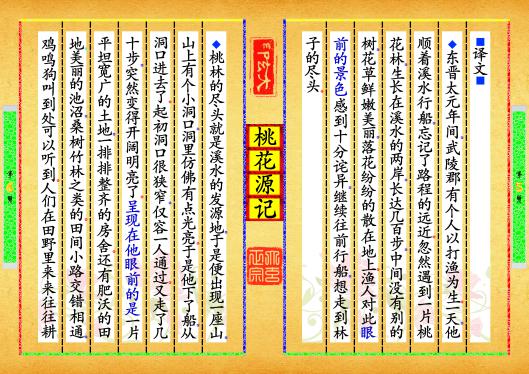 ■译文■
◆东晋太元年间武陵郡有个人以打渔为生一天他
顺着溪水行船忘记了路程的远近忽然遇到一片桃
花林生长在溪水的两岸长达几百步中间没有别的
树花草鲜嫩美丽落花纷纷的散在地上渔人对此眼
前的景色感到十分诧异继续往前行船想走到林
子的尽头
桃花源记
◆桃林的尽头就是溪水的发源地于是便出现一座山
山上有个小洞口洞里仿佛有点光亮于是他下了船从
洞口进去了起初洞口很狭窄仅容一人通过又走了几
十步突然变得开阔明亮了呈现在他眼前的是一片
平坦宽广的土地一排排整齐的房舍还有肥沃的田
地美丽的池沼桑树竹林之类的田间小路交错相通
鸡鸣狗叫到处可以听到人们在田野里来来往往耕